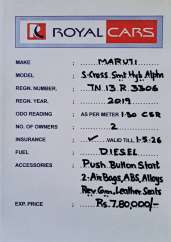 ROYAL CARS
MAKE : MARUTI
MODEL : S.Cross. Smt Hyb Alpha
REGN. NUMBER. : TN.13 R.3306
REGN. YEAR. : 2019
ODO READING : AS PER METER 1.30
NO. OF OWNERS : 2
INSURANCE : ✓ VALID TILL 1-5-26
FUEL : DIESEL
ACCESSORIES : Push Button Start
2-Air Bags, ABS, Alloys
Rev Cam, Leather Seats
EXP. PRICE : Rs. 7,80,000/-